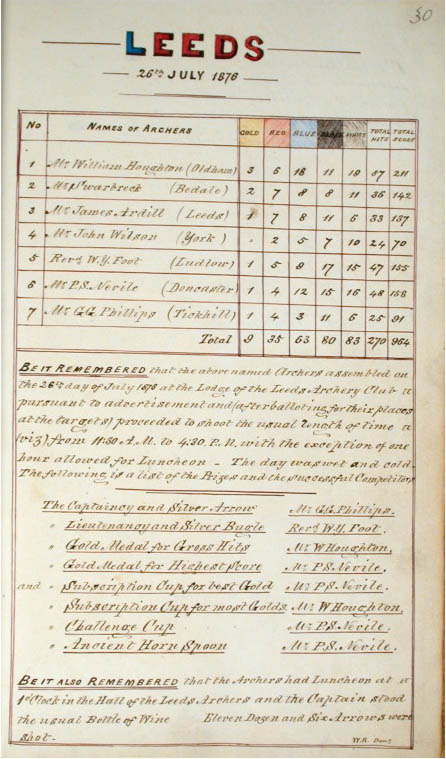 30
LEEDS
26TH JULY 1876
No NAMES OF ARCHERS GOLD RED BLUE BLACK WHITE TOTAL HITS TOTAL SCORE
1 Mr William Houghton (Oldham) 3 6 18 11 19 57 211
2 Mr Swarbreck (Bedale) 2 7 8 8 11 36 142
3 Mr James Ardill (Leeds) 1 7 8 11 6 33 137
4 Mr John Wilson (York) . 2 5 7 10 24 70
5 Revd W.Y. Foot (Ludlow) 1 5 9 17 15 47 155
6 Mr P.S. Nevile (Doncaster) 1 4 12 15 16 48 158
7 Mr G.G. Phillips (Tickhill) 1 4 3 11 6 25 91
Total 9 35 63 80 83 270 964
BE IT REMEMBERED that the above named Archers assembled on
the 26th day of July 1876 at the Lodge of the Leeds Archery Club
pursuant to advertisement and (after balloting for their places
at the targets) proceeded to shoot the usual length of time
(viz) from 11:30 A.M. to 4:30 P.M. with the exception of one
hour allowed for Luncheon – The day was wet and cold.
The following is a list of the Prizes and the successful Competitors
The Captaincy and Silver Arrow Mr G.G. Phillips.
" Lieutenancy and Silver Bugle Revd W.Y. Foot.
" Gold Medal for Gross Hits Mr W Houghton.
" Gold Medal for Highest Score Mr P.S. Nevile.
and " Subscription Cup for best Gold Mr P.S. Nevile.
" Subscription Cup for most Golds Mr W Houghton.
" Challenge Cup Mr P.S. Nevile.
" Ancient Horn Spoon Mr P.S. Nevile.
BE IT ALSO REMEMBERED that the Archers had Luncheon at
1 o'Clock in the Hall of the Leeds Archers and the Captain stood
the usual Bottle of Wine Eleven Dozen and Six Arrows were
shot. W.R.